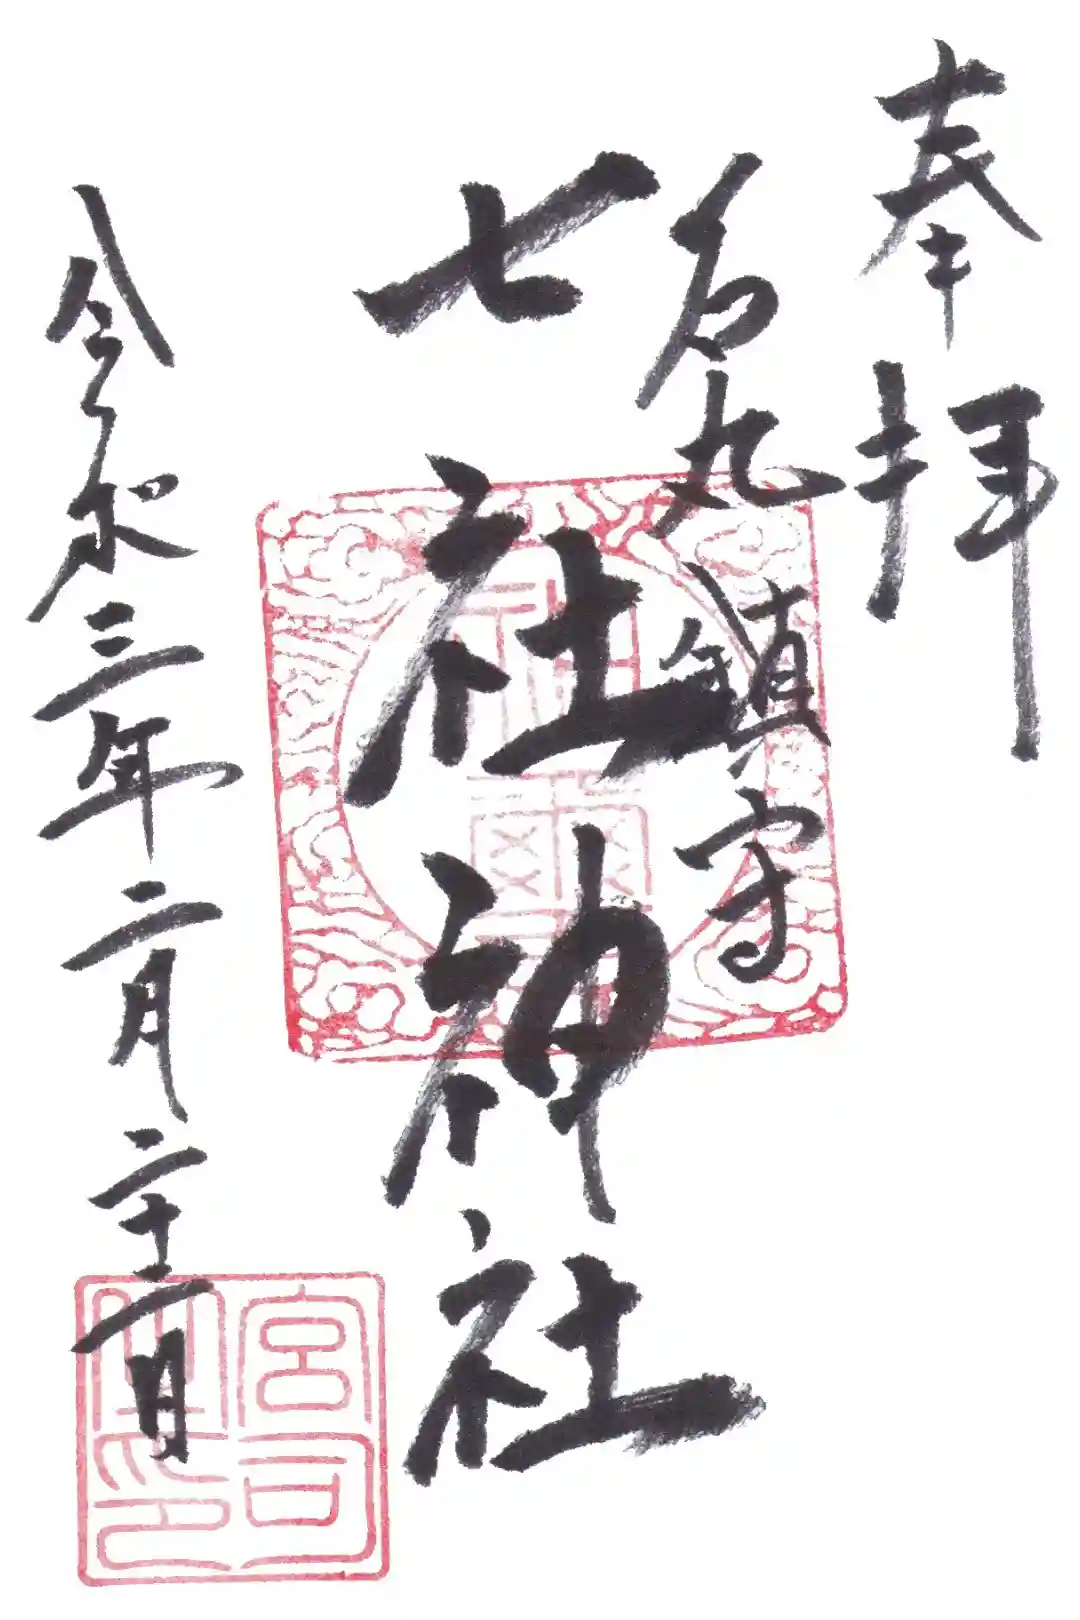 奉拝
丸鎮守
七社神社
令和三年二月二十二日
宮司之印